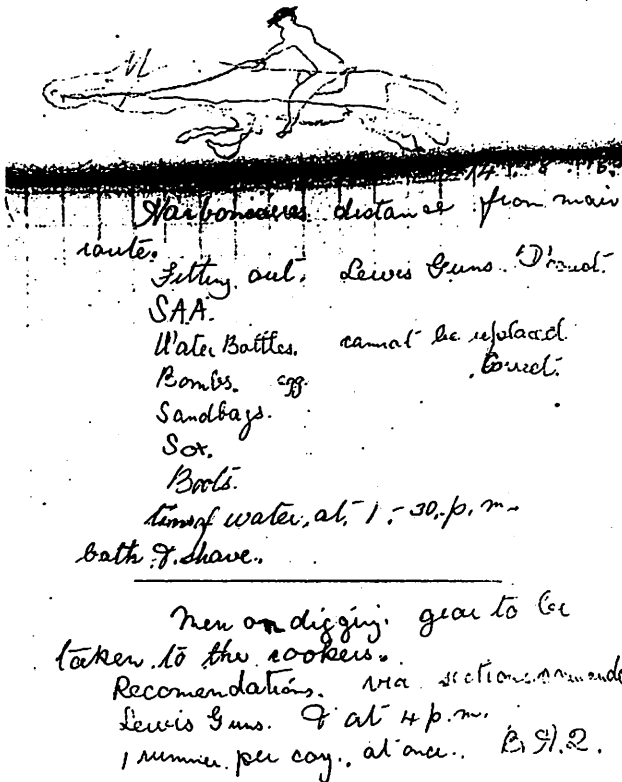 distance from main
route.
Fitting out. Lewis Guns.
SAA.
Water Bottles. cannot be replaced.
Bombs. egg.
Sandbags.
Sox.
Boots.
time of water, at, 1-30. p. m.
bath & shave.
Men on digging. gear to be
taken to the cookers.
Recomendations. via
Lewis Guns. & at 4 p. m.
1 runner per coy., at once.